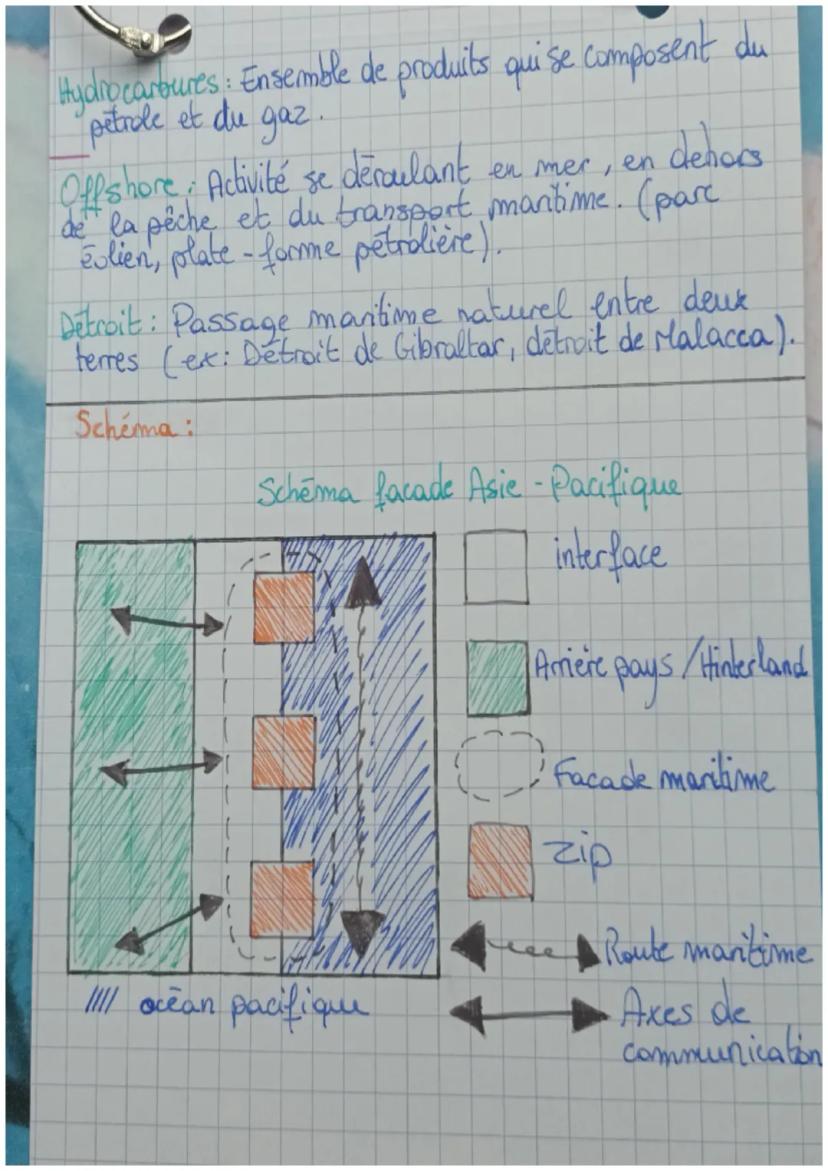 Hydrocarbures : Ensemble de produits qui se composent du
pétrole et du gaz.
Offshore : Activité se déroulant en mer, en dehors
de la pêche et du transport maritime. (parc
éolien, plate-forme pétrolière).
Détroit : Passage maritime naturel entre deux
terres (ex: Détroit de Gibraltar, détroit de Malacca).
Schéma :
Schéma facade Asie-Pacifique
interface
Arrière pays/Hinterland
Facade maritime
zip
Route maritime
Axes de
communication
océan pacifique